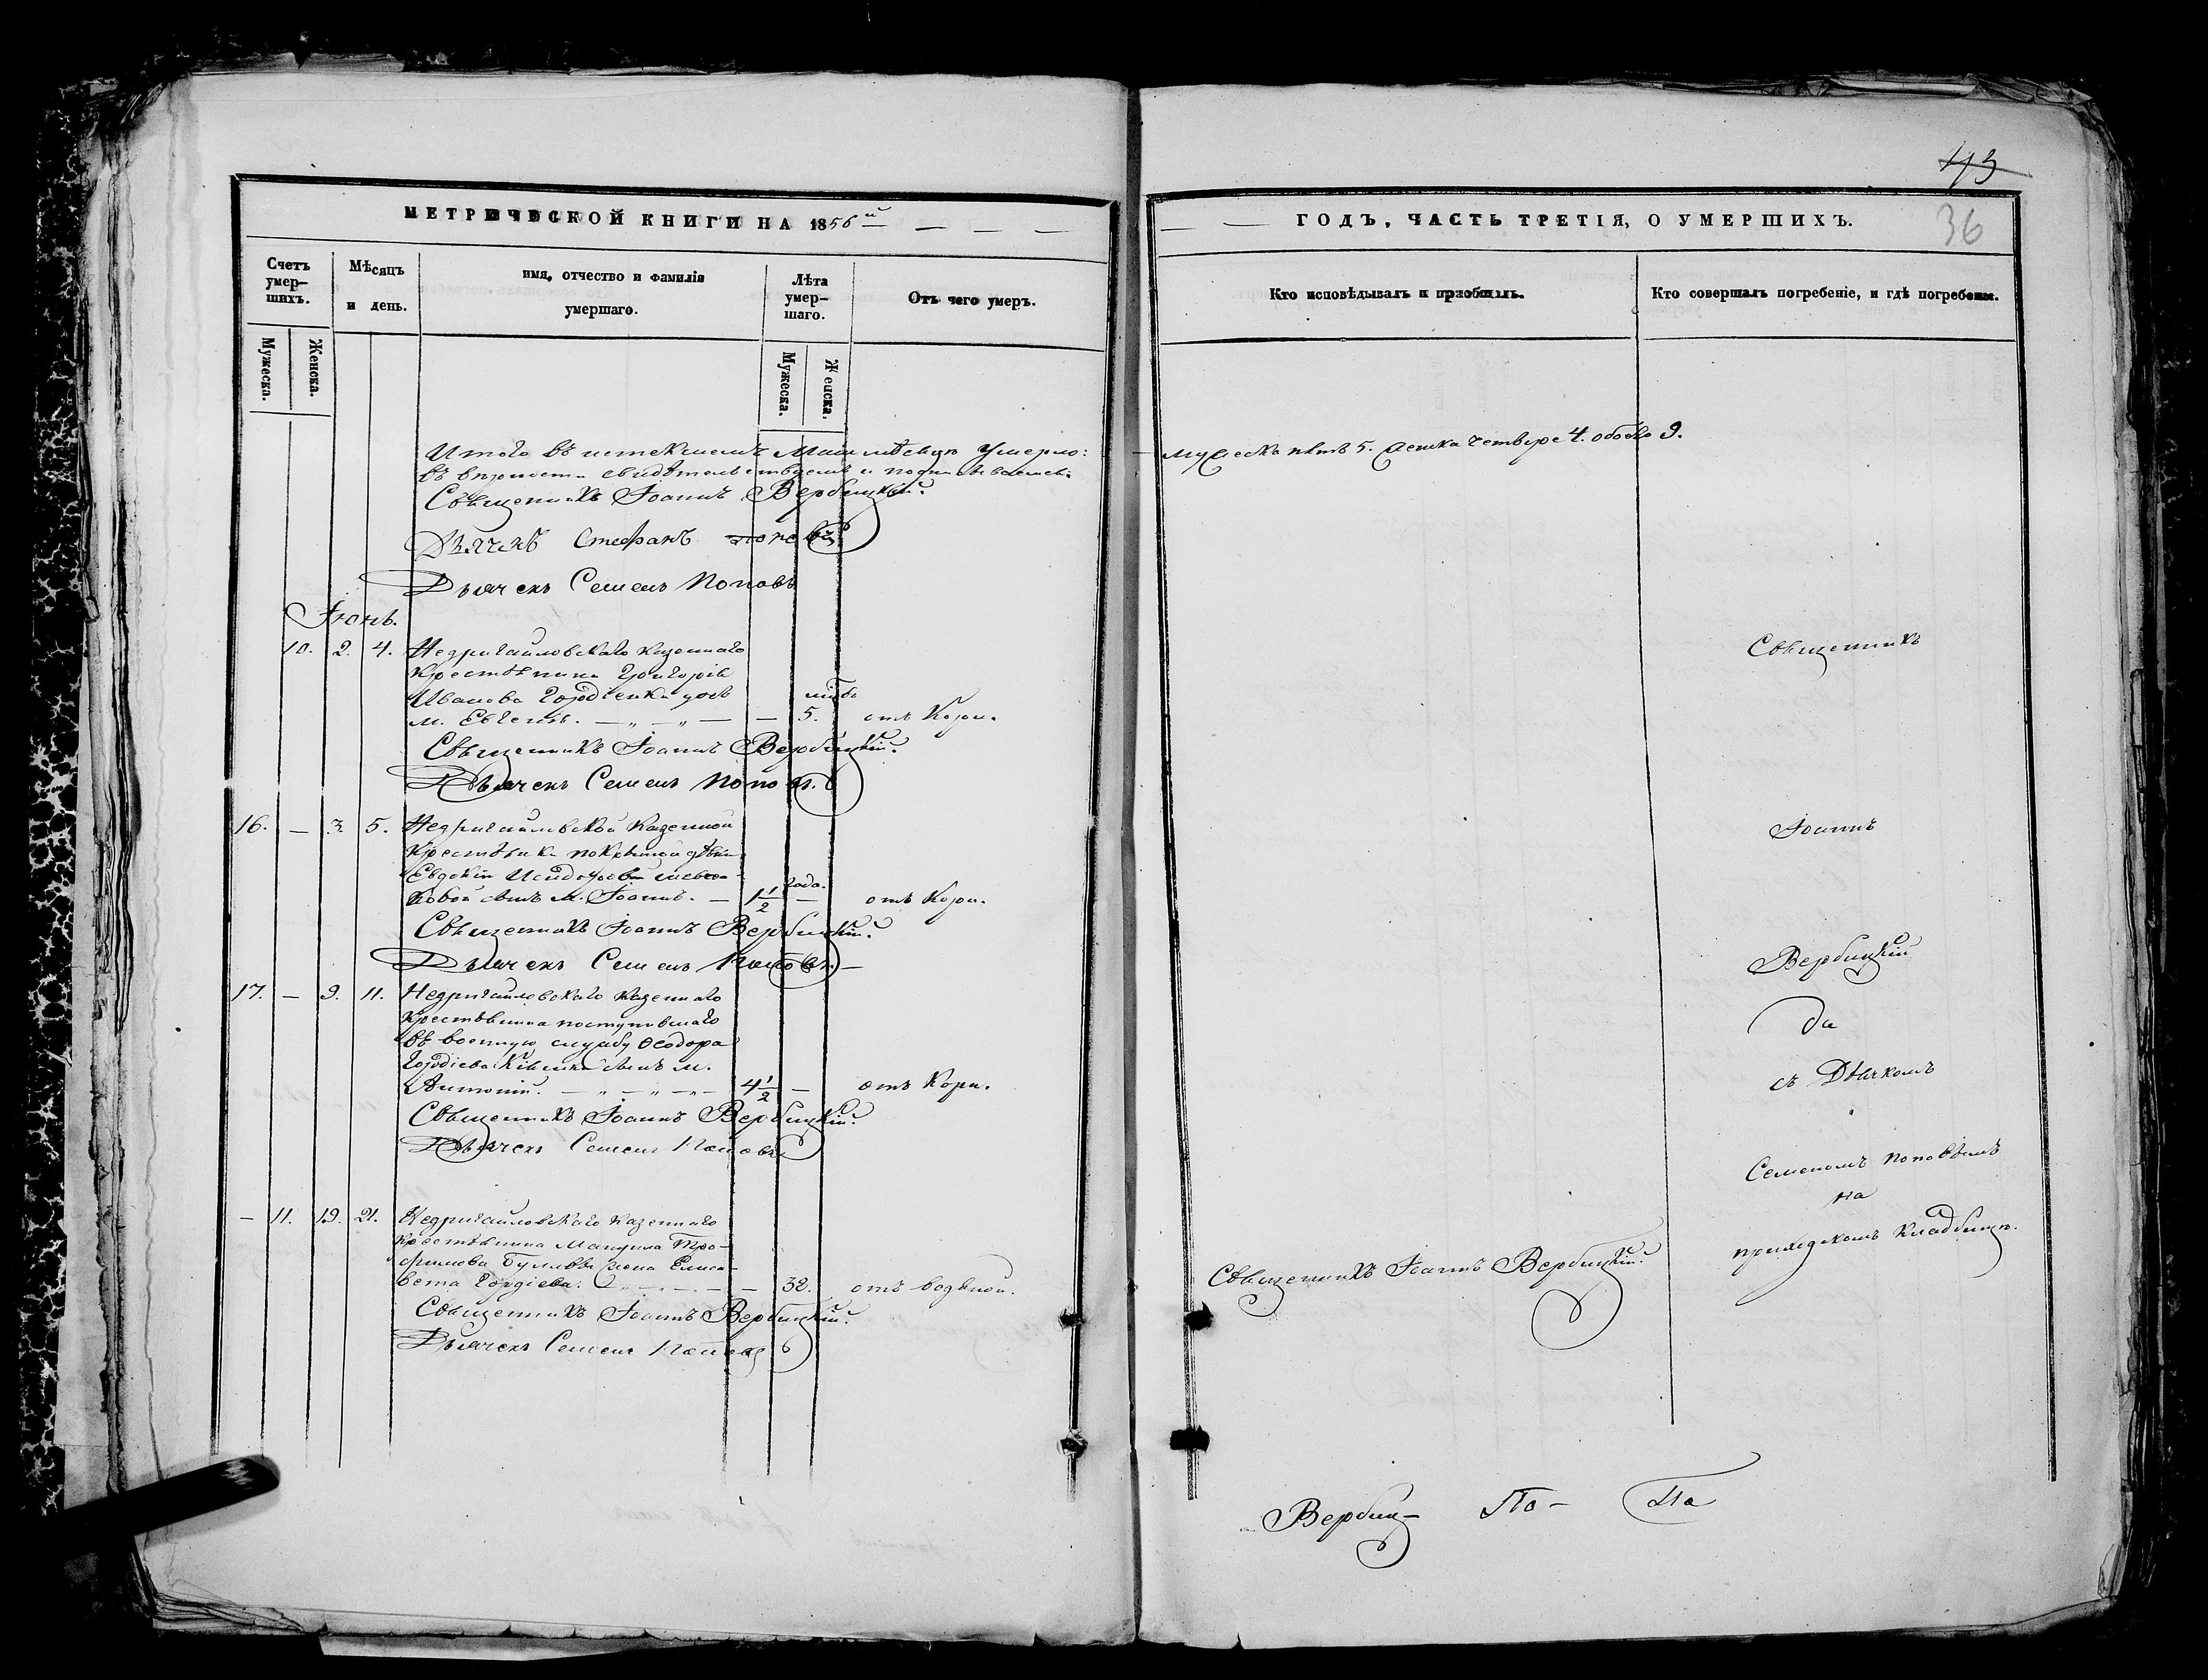 МЕТРИЧЕСКОЙ КНИГИ НА 1856й
Счетъ умер-шихъ.
Мужеска.
Женска.
Мѣсяцъ и день.
имя, отчество и фамилія умершаго.
Лѣта умер-шаго.
Мужеска.
Женска.
Отъ чего умеръ.
Итого въ истекшемъ Маіи мѣсяцѣ Умерло:
въ вѣрности свидѣтельствуемъ и подписываемся.
Священникъ Іоаннъ Вербицкій.
Дьячекъ Стефанъ Поповъ
Дьячекъ Семенъ Поповъ
Іюнь.
10. 2. 4. Недригайловскаго казеннаго
крестьянина Григорія
Иванова Гордіенка дочь лѣтъ
м. Евгенія. — „ — „ — — 5. отъ Кори.
Священникъ Іоаннъ Вербицкій.
Дьячекъ Семенъ Поповъ.
16. — 3. 5. Недригайловской Казенной
крестьянки покрытой дѣвки
Евдокіи Исидоровой Шевча- года.
ковой сынъ м. Іоаннъ. — 1 1/2 — отъ Кори.
Священникъ Іоаннъ Вербицкій.
Дьячекъ Семенъ Поповъ.
17. — 9. 11. Недригайловскаго казеннаго
Крестьянина поступившаго
въ военную службу Ѳеодора
Гордіева сынъ м.
Антоній. — „ — „ — „ — 4 1/2 — отъ Кори.
Священникъ Іоаннъ Вербицкій.
Дьячекъ Семенъ Поповъ
— 11. 19. 21. Недригайловскаго казеннаго
крестьянина Мануила Тро-
фимова жена Елиса-
вета Гордіева. — — 32. отъ водяной.
Священникъ Іоаннъ Вербицкій.
Дьячекъ Семенъ Поповъ
43
36
ГОДЪ, ЧАСТЬ ТРЕТІЯ, О УМЕРШИХЪ.
Кто исповѣдывалъ и пріобщалъ.
Кто совершалъ погребеніе, и гдѣ погребены.
мужеска пять 5. женска четыре 4. обоего 9.
Священникъ
Іоаннъ
Вербицкій
да
съ Дьячкомъ
Семеномъ Поповымъ
на
приходскомъ кладбищѣ.
Священникъ Іоаннъ Вербицкій.
Вербиц- По- На